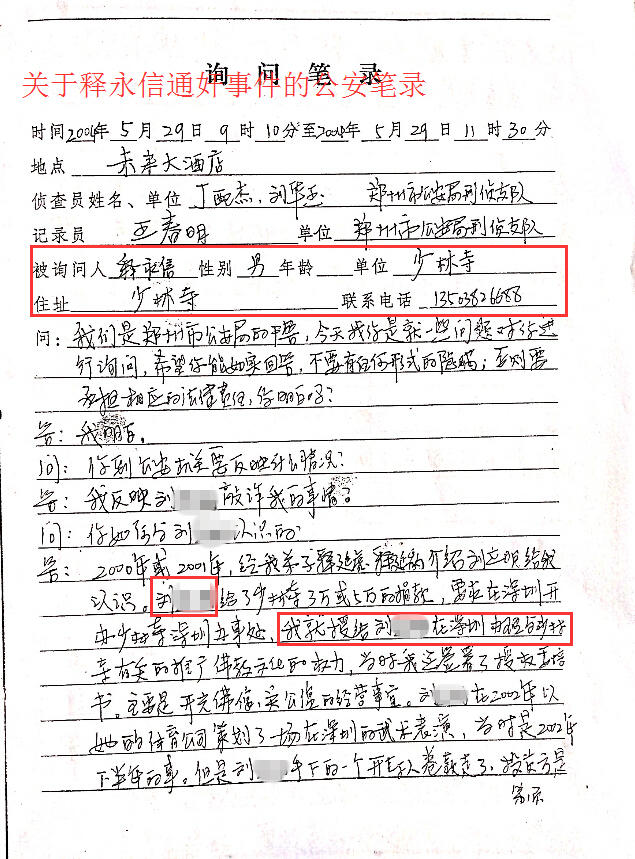 询问笔录
关于释永信通奸事件的公安笔录
时间2004年5月29日9时10分至2004年5月29日11时30分
地点 未来大酒店
侦查员姓名、单位 丁配杰、刘华玉 郑州市公安局刑侦支队
记录员 王春明 单位 郑州市公安局刑侦支队
被询问人 释永信 性别 男 年龄 单位 少林寺
住址 少林寺 联系电话 13503826688
问：我们是郑州市公安局的干警，今天找你是就一些问题对你进
行询问，希望你能如实回答，不要有任何形式的隐瞒，否则要
承担相应的法律责任，你明白吗？
答：我明白。
问：你到公安机关要反映什么情况？
答：我反映刘 敲诈我的事情。
问：你如何与刘 认识的
答：2000年或2001年，经我弟子释延 介绍刘 给我
认识。刘 给了少林寺3万或5万的捐款，要求在深圳开
办少林寺深圳办事处，我就授给刘 在深圳办理与少林
寺有关的推广佛教文化的权力，当时我还签署了授权委培
书。主要是开光佛像、卖公德的经营事宜。刘 在2002年以
她的体育公司策划了一场在深圳的武术表演，当时是2002年
下半年的事。但是刘 手下的一个开卷款走了，投资方是